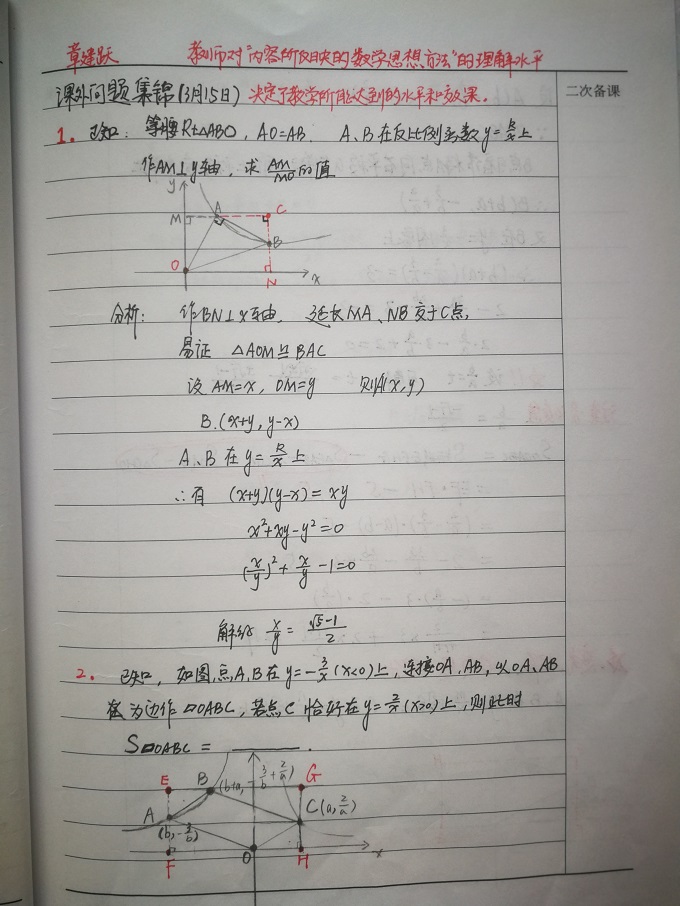 章建跃 教师对"内容所反映的数学思想方法"的理解水平
课外问题集锦(3月15日) 决定了教学所能达到的水平和效果。
二次备课
1. 已知: 等腰Rt△ABO, AO=AB. A、B在反比例函数y=k/x上
作AM⊥y轴, 求 AM/MO 的值
y
M
A
C
B
O
N
x
分析: 作BN⊥x轴. 延长MA、NB交于C点,
易证 △AOM≌BAC
设 AM=x, OM=y 则A(x,y)
B.(x+y, y-x)
A、B 在 y=k/x 上
∴有 (x+y)(y-x)=xy
x²+xy-y²=0
(x/y)²+x/y-1=0
解得 x/y=(√5-1)/2
2. 已知, 如图,点A,B在y=-3/x(x<0)上,连接OA、AB,以OA、AB
为边作▱OABC,若点C恰好在y=2/x(x>0)上,则此时
S▱OABC = ______.
E
B
(b+a, -3/b+2/a)
G
A
(b,-3/b)
C(a,2/a)
F
O
H
x